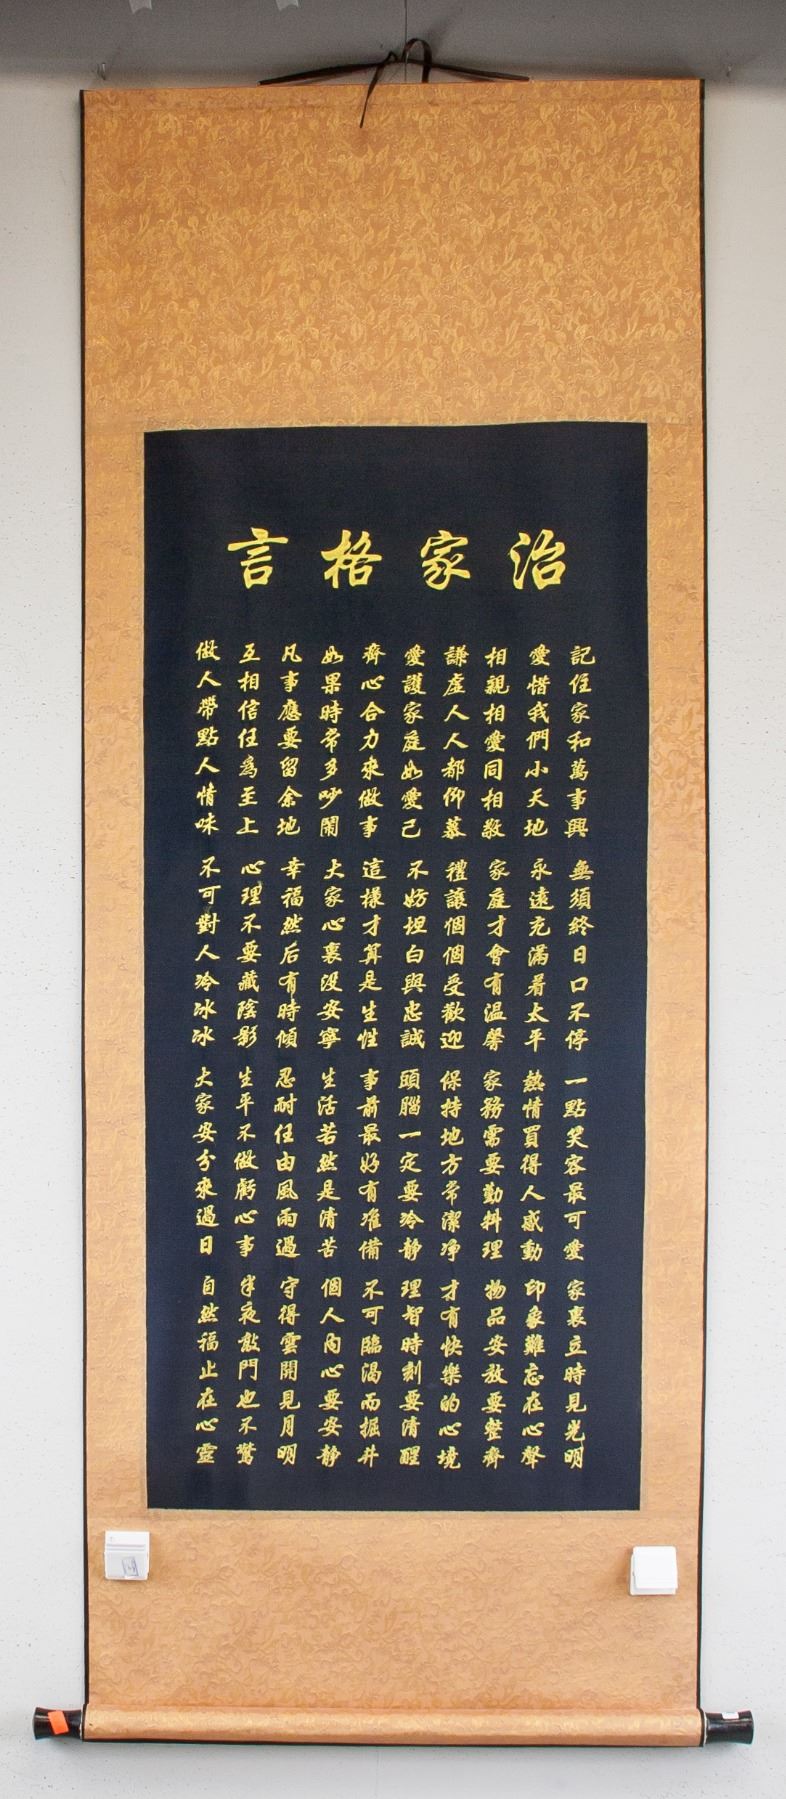 治家格言
記住家和萬事興 無須終日口不停 一點笑容最可愛 家裏立時見光明
愛惜我們小天地 永遠充滿着太平 熱情買得人感動 印象難忘在心聲
相親相愛同相敬 家庭才會有温馨 家務需要勤料理 物品安放要整齊
謙虛人人都仰慕 禮讓個個受歡迎 保持地方常潔净 才有快樂的心境
愛護家庭如愛己 不妨坦白與忠誠 頭腦一定要冷静 理智時刻要清醒
齊心合力來做事 這樣才算是生性 事前最好有准備 不可臨渴而掘井
如果時常多吵鬧 大家心裏没安寧 生活若然是清苦 個人内心要安静
凡事應要留余地 幸福然后有時傾 忍耐任由風雨過 守得雲開見月明
互相信任為至上 心理不要藏陰影 生平不做虧心事 半夜敲門也不驚
做人帶點人情味 不可對人冷冰冰 大家安分來過日 自然福止在心靈